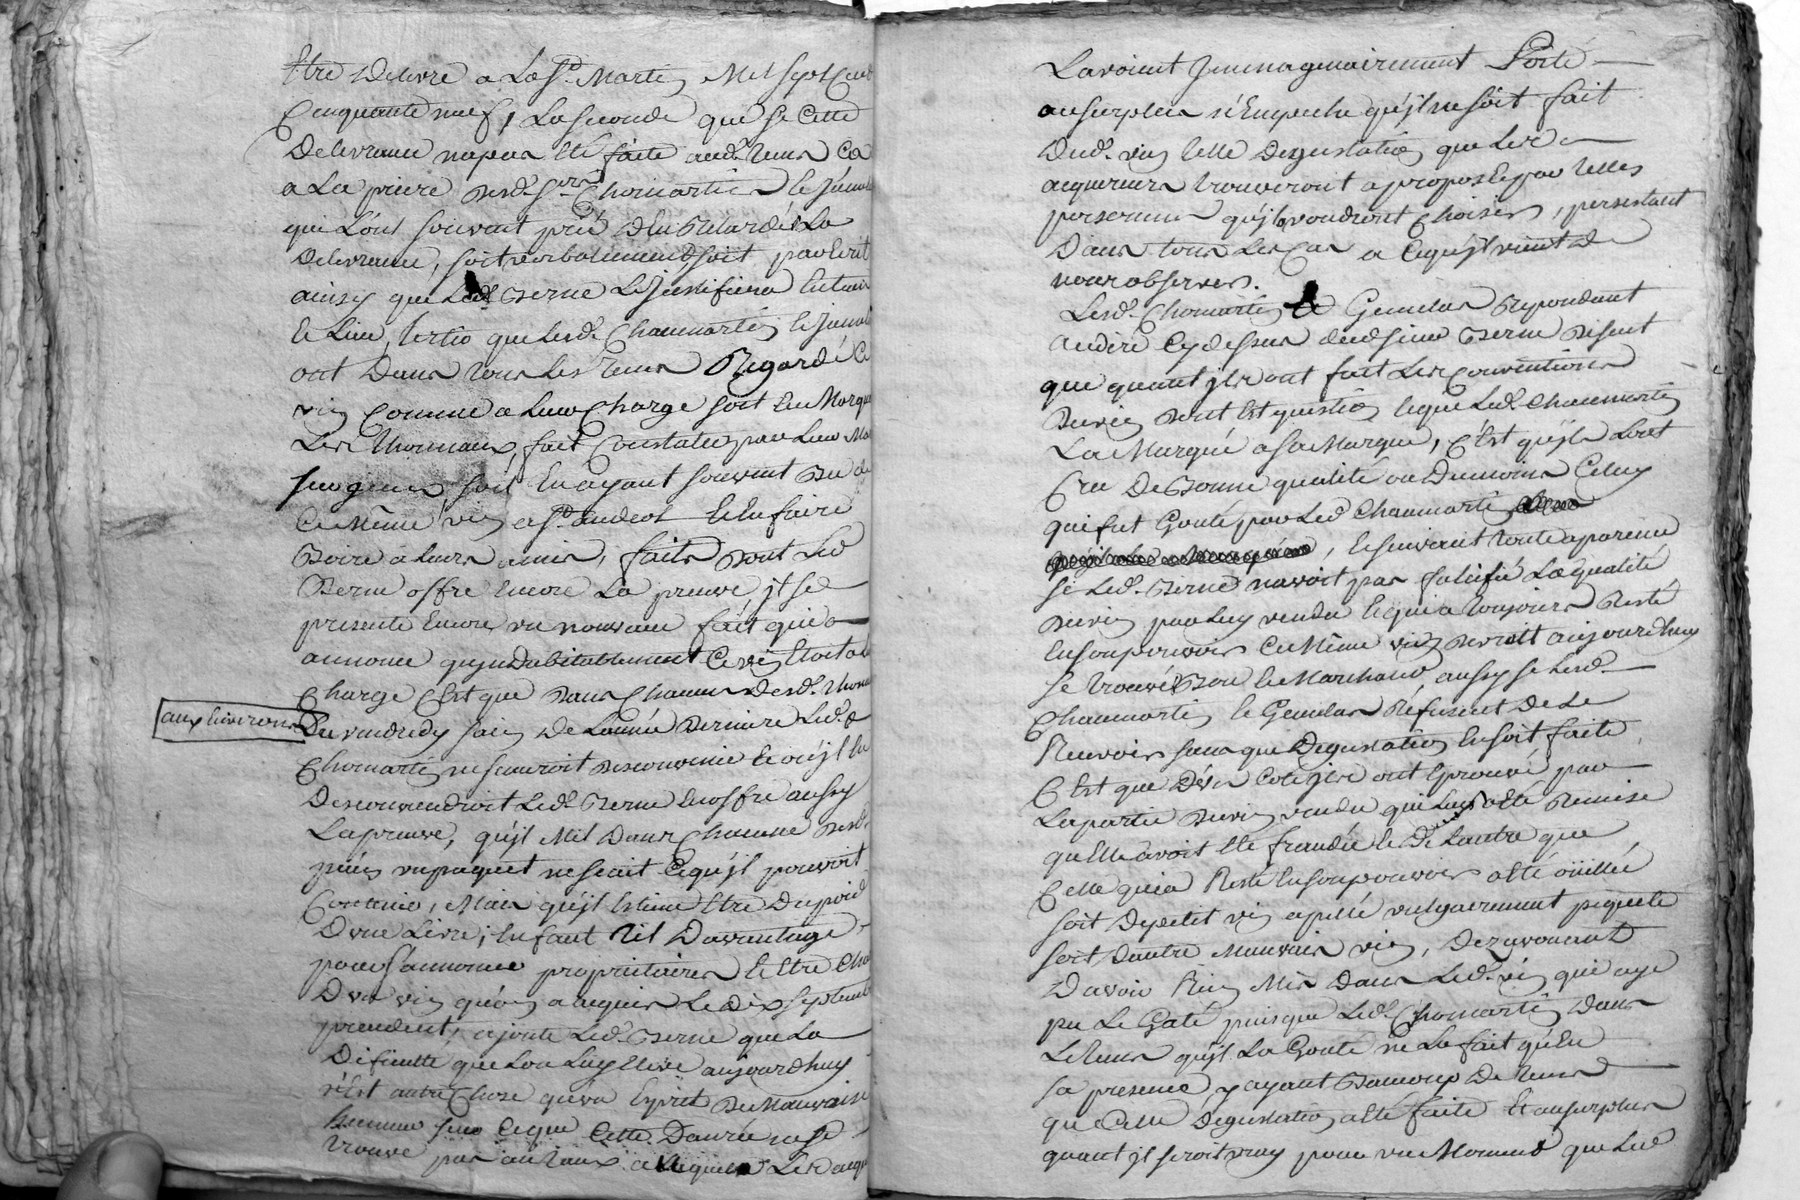 Etre Delivré a La St. Martin Mil Sept Cent
Cinquante neuf, La seconde que se Cette
Delivrance napas Eté faite aud. tems Ca
a La priere desd. Srs Chomartin le
qui Lont souvent prié den Retardér La
Delivrance, soit verbalement soit par Ecrit
ainsy que Led. Berne Le Justifiera
le Lieu, tertio que Lesd. Chaumartin
ont Dans tous Les tems Regardé Ce
vin Comme a Leur Charge soit En Marqu
Les thonnaux, fait par Leur
soit En ayant souvent Bu de
Ce Même vin a St. andeol Et En faire
Boire a Leurs amis, faits dont Led
Berne offre Encore La preuve, jl se
presente Encore un nouveau fait qui
annonce qu'jndubitablement Ce vin Etoit a
Charge C'Est que dans Chacun Desd. thon
aux Environs
Du vendredy sain De Lannée Derniere Led.
Chomartin ne scauroit disconvenir Et ou jl En
Disconviendroit Led. Berne En offre aussy
La preuve, qu'jl Mit Dans Chacune desd.
un paquet ne scait Cequ'jl pouvoit
Contenir, Mais qu'jl Estime Etre Du poid
D'une Livre; En faut Til Davantage
pour S'annoncer proprietaires Et Etre Char
D'un vin qu'on a acquis Le dix septembre
precedent, ajoute Led. Berne que La
Dificulté que Lon Luy Eleve aujourdhuy
n'Est autre Chose qu'un Esprit De Mauvaise
humeur sur Ceque Cette Danrée ne se
trouve pas au taux auquel Les acqu
Lavoient Jmmaginairement Porté
au surplus n'Empeche qu'jl ne soit fait
Dud. vin telle Degustation que Les
acquereurs trouveront a propos Et par telles
personnes qu'jls voudront Choisir, persistant
Dans tous Les Cas a Cequ'jl vient De
nous observer.
Lesd. Chomartin & Genulas Repondant
audire Cydessus dud sieur Berne Disent
que quant jls ont fait Les Conventions
Du vin dont Est question Et que Led. Chaumartin
La Marqué a sa Marque, C'Est qu'jls Lont
Cru De Bonne qualité ou Dumoins Celuy
qui fut Gouté par Led Chaumartin
, Et suivant toute aparence
se Led. Berne navoit pas falcifié La qualité
Du vin par Luy vendu Et qui a toujours Resté
En son pouvoir Ce Même vin devroit aujourdhuy
se trouvér Bon Et Marchand aussy se Lesd.
Chaumartin Et Genulas Refusent De Le
Recevoir sans que Degustation En soit faite,
C'Est que D'un Coté jls ont Eprouvé par
La partie du vin vendu qui Leur a Eté Remise
qu'Elle avoit Eté fraudée Et De Lautre que
Celle qui a Resté En son pouvoir a Eté oüillée
soit De petit vin apellé vulgairement piquette
soit Dautre Mauvais vin, Dezavouant
Davoir Rien Mis Dans Led. vin qui aye
pu Le Gaté puisque Led. Chomartin Dans
Le tems qu'jl La Gouté ne La fait qu'En
sa presence y ayant Beaucoup De tems
que Cette Degustation a Eté faite Et au surplus
quant jl seroit vray pour un Moment que Led